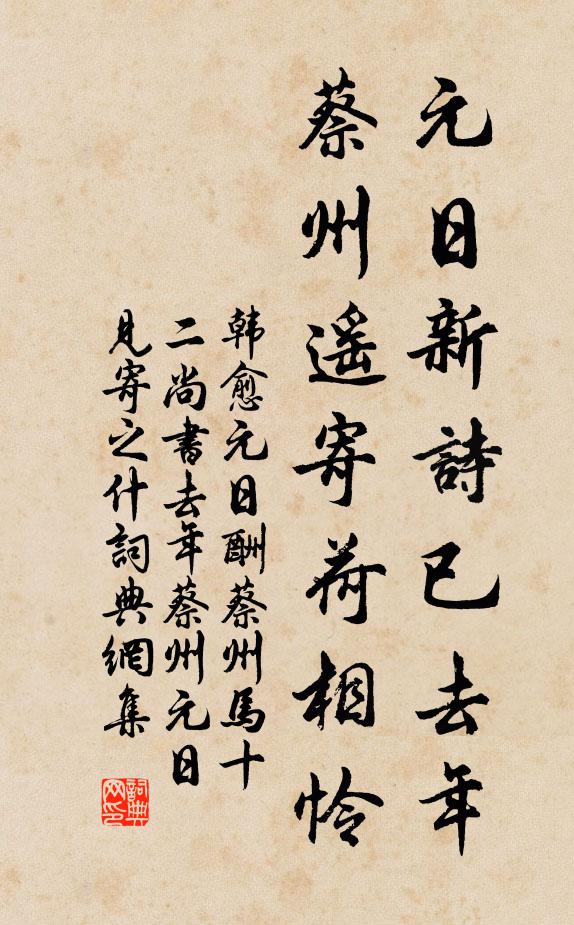 元日新詩已去年
蔡州遥寄荷相怜
韩愈元日酬蔡州馬十
二尚書去年蔡州元日
見寄之什詞典網集
詞典
网印